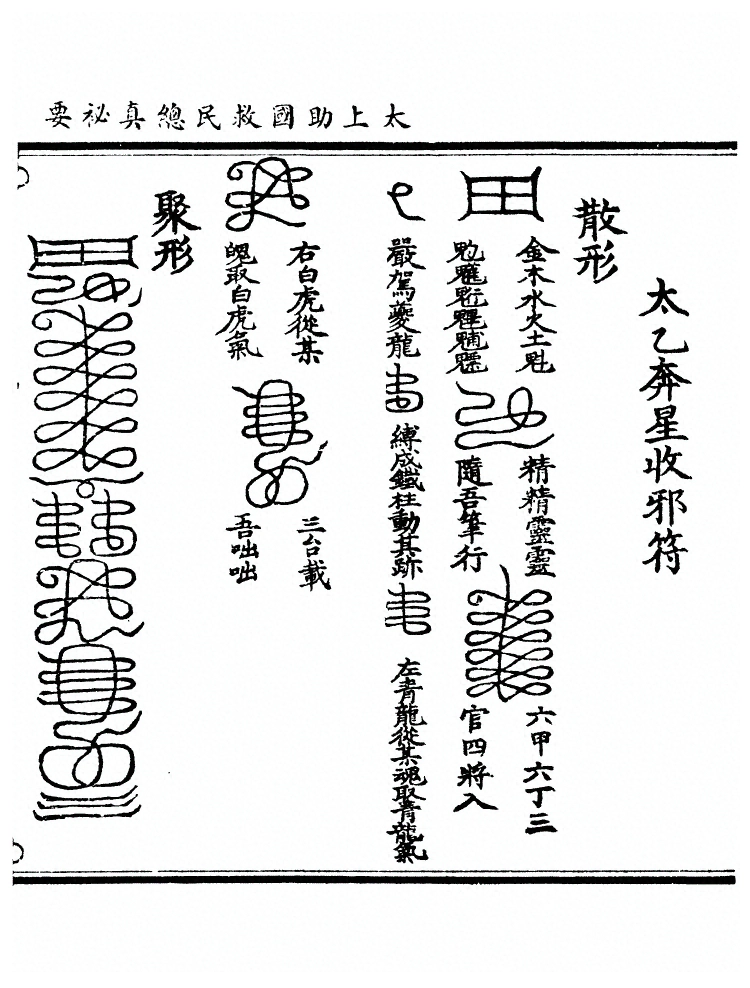 太上助國救民總真祕要
太乙奔星收邪符
散形
金木水火土魁
魁魓魒
精精靈靈
隨吾筆行
六甲六丁三
官四將入
嚴駕夔龍
縛成鐵柱動其跡
左青龍從某魂取青龍氣
右白虎從某
魄取白虎氣
三台載
吾咄咄
聚形